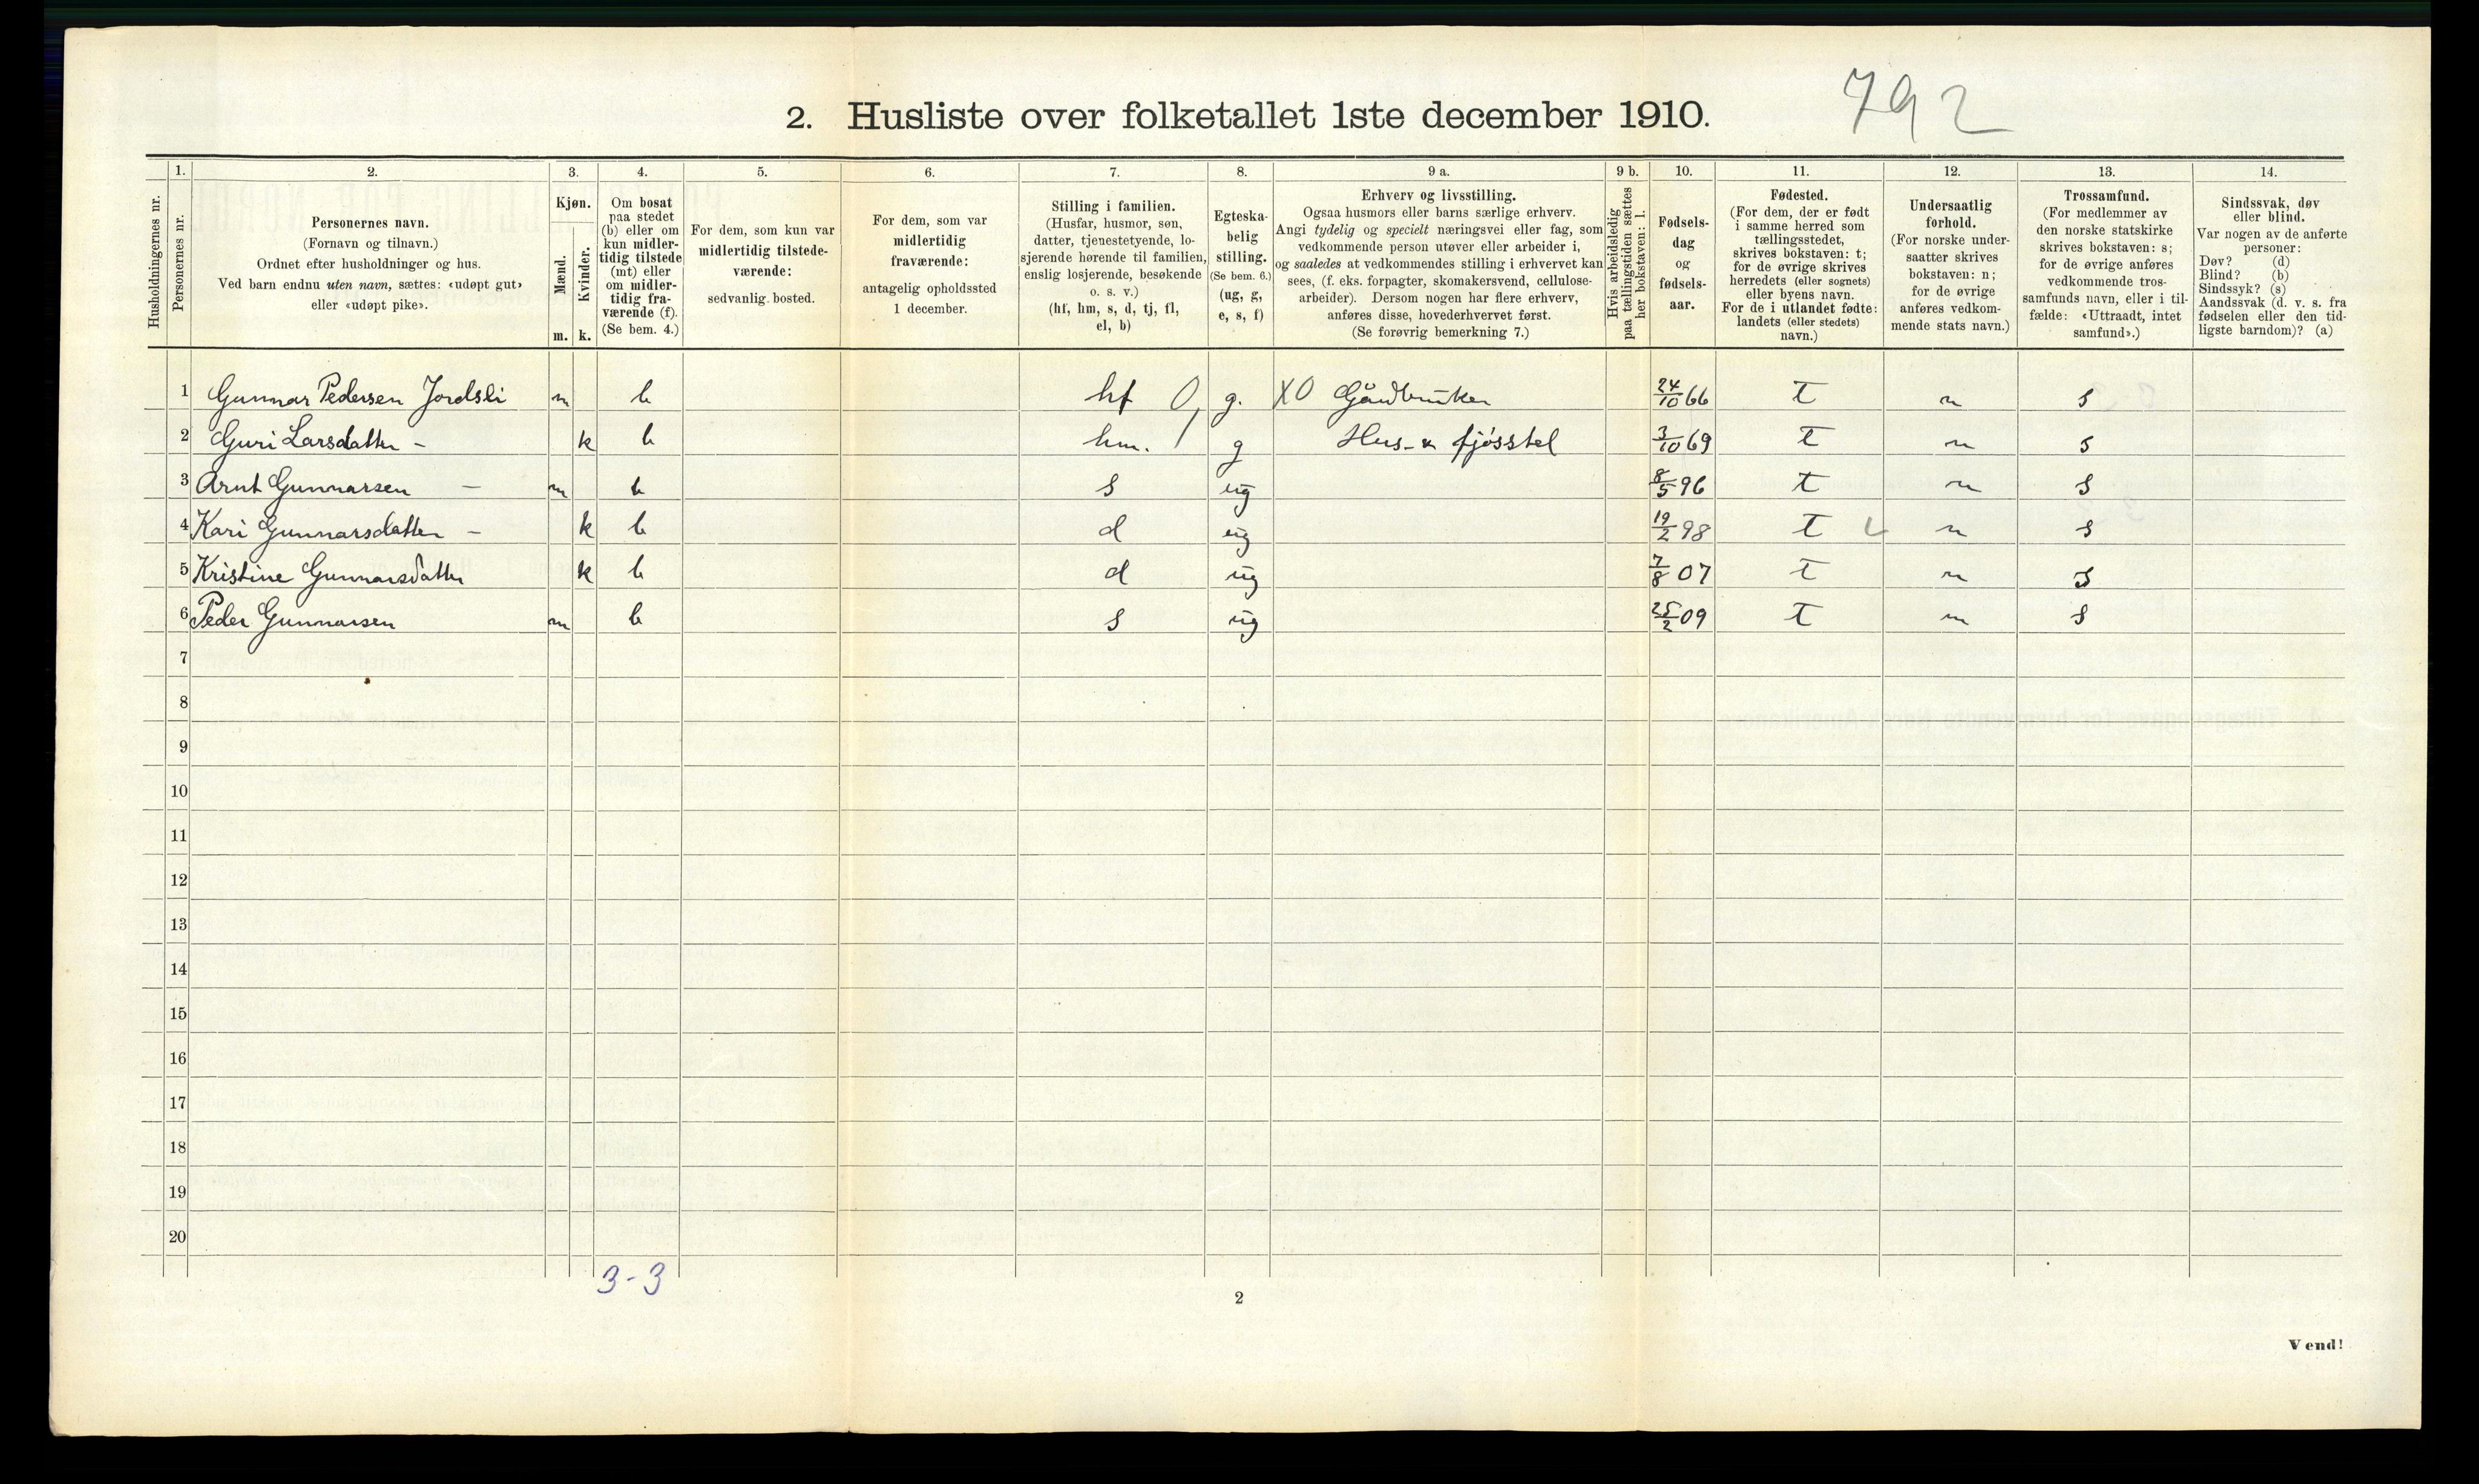 792
2. Husliste over folketallet 1ste december 1910.
Husholdningernes nr.
1.
Personernes nr.
2.
Personernes navn.
(Fornavn og tilnavn.)
Ordnet efter husholdninger og hus.
Ved barn endnu uten navn, sættes: «udøpt gut»
eller «udøpt pike».
3.
Kjøn.
Mænd.
Kvinder.
m. k.
4.
Om bosat
paa stedet
(b) eller om
kun midler-
tidig tilstede
(mt) eller
om midler-
tidig fra-
værende (f).
(Se bem. 4.)
5.
For dem, som kun var
midlertidig tilstede-
værende:
sedvanlig bosted.
6.
For dem, som var
midlertidig
fraværende:
antagelig opholdssted
1 december.
7.
Stilling i familien.
(Husfar, husmor, søn,
datter, tjenestetyende, lo-
sjerende hørende til familien,
enslig losjerende, besøkende
o. s. v.)
(hf, hm, s, d, tj, fl,
el, b)
8.
Egteska-
belig
stilling.
(Se bem. 6.)
(ug, g,
e, s, f)
9 a.
Erhverv og livsstilling.
Ogsaa husmors eller barns særlige erhverv.
Angi tydelig og specielt næringsvei eller fag, som
vedkommende person utøver eller arbeider i,
og saaledes at vedkommendes stilling i erhvervet kan
sees, (f. eks. forpagter, skomakersvend, cellulose-
arbeider). Dersom nogen har flere erhverv,
anføres disse, hovederhvervet først.
(Se forøvrig bemerkning 7.)
9 b.
Hvis arbeidsledig
paa tællingstiden sættes
her bokstaven: l.
10.
Fødsels-
dag
og
fødsels-
aar.
11.
Fødested.
(For dem, der er født
i samme herred som
tællingsstedet,
skrives bokstaven: t;
for de øvrige skrives
herredets (eller sognets)
eller byens navn.
For de i utlandet fødte:
landets (eller stedets)
navn.)
12.
Undersaatlig
forhold.
(For norske under-
saatter skrives
bokstaven: n;
for de øvrige
anføres vedkom-
mende stats navn.)
13.
Trossamfund.
(For medlemmer av
den norske statskirke
skrives bokstaven: s;
for de øvrige anføres
vedkommende tros-
samfunds navn, eller i til-
fælde: «Uttraadt, intet
samfund».)
14.
Sindssvak, døv
eller blind.
Var nogen av de anførte
personer:
Døv? (d)
Blind? (b)
Sindssyk? (s)
Aandssvak (d. v. s. fra
fødselen eller den tid-
ligste barndom)? (a)
1 Gunnar Pedersen Jordsli m b hf 0, g. X0 Gårdbruker 24/10 66 t n s
2 Guri Larsdatter - k b hm. 1 g Hus- & fjøsstel 3/10 69 t n s
3 Arnt Gunnarsen - m b s ug 8/5 96 t n s
4 Kari Gunnarsdatter - k b d ug 19/2 98 t n s
5 Kristine Gunnarsdatter k b d ug 7/8 07 t n s
6 Peder Gunnarsen m b s ug 25/2 09 t n s
7
8
9
10
11
12
13
14
15
16
17
18
19
20
3-3
2
Vend!